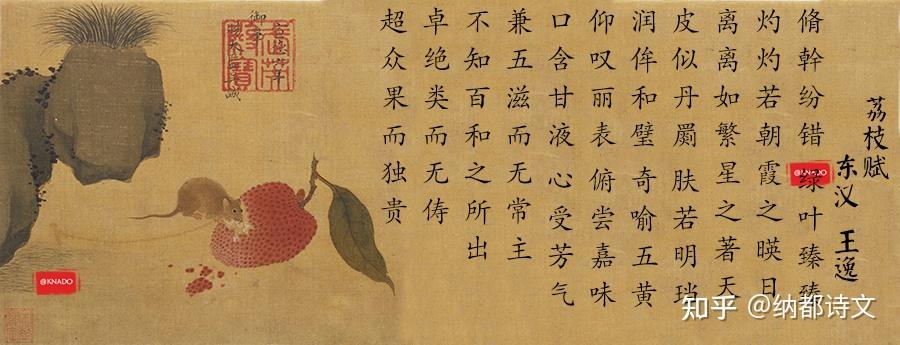 荔枝赋
东汉 王逸
脩幹纷错 绿叶臻臻
灼灼若朝霞之暎日
离离如繁星之著天
皮似丹罽 肤若明珰
润侔和璧 奇喻五黄
仰叹丽表 俯尝嘉味
口含甘液 心受芳气
兼五滋而无常主
不知百和之所出
卓绝类而无俦
超众果而独贵
御笔
@KNADO
@KNADO
知乎 @纳都诗文